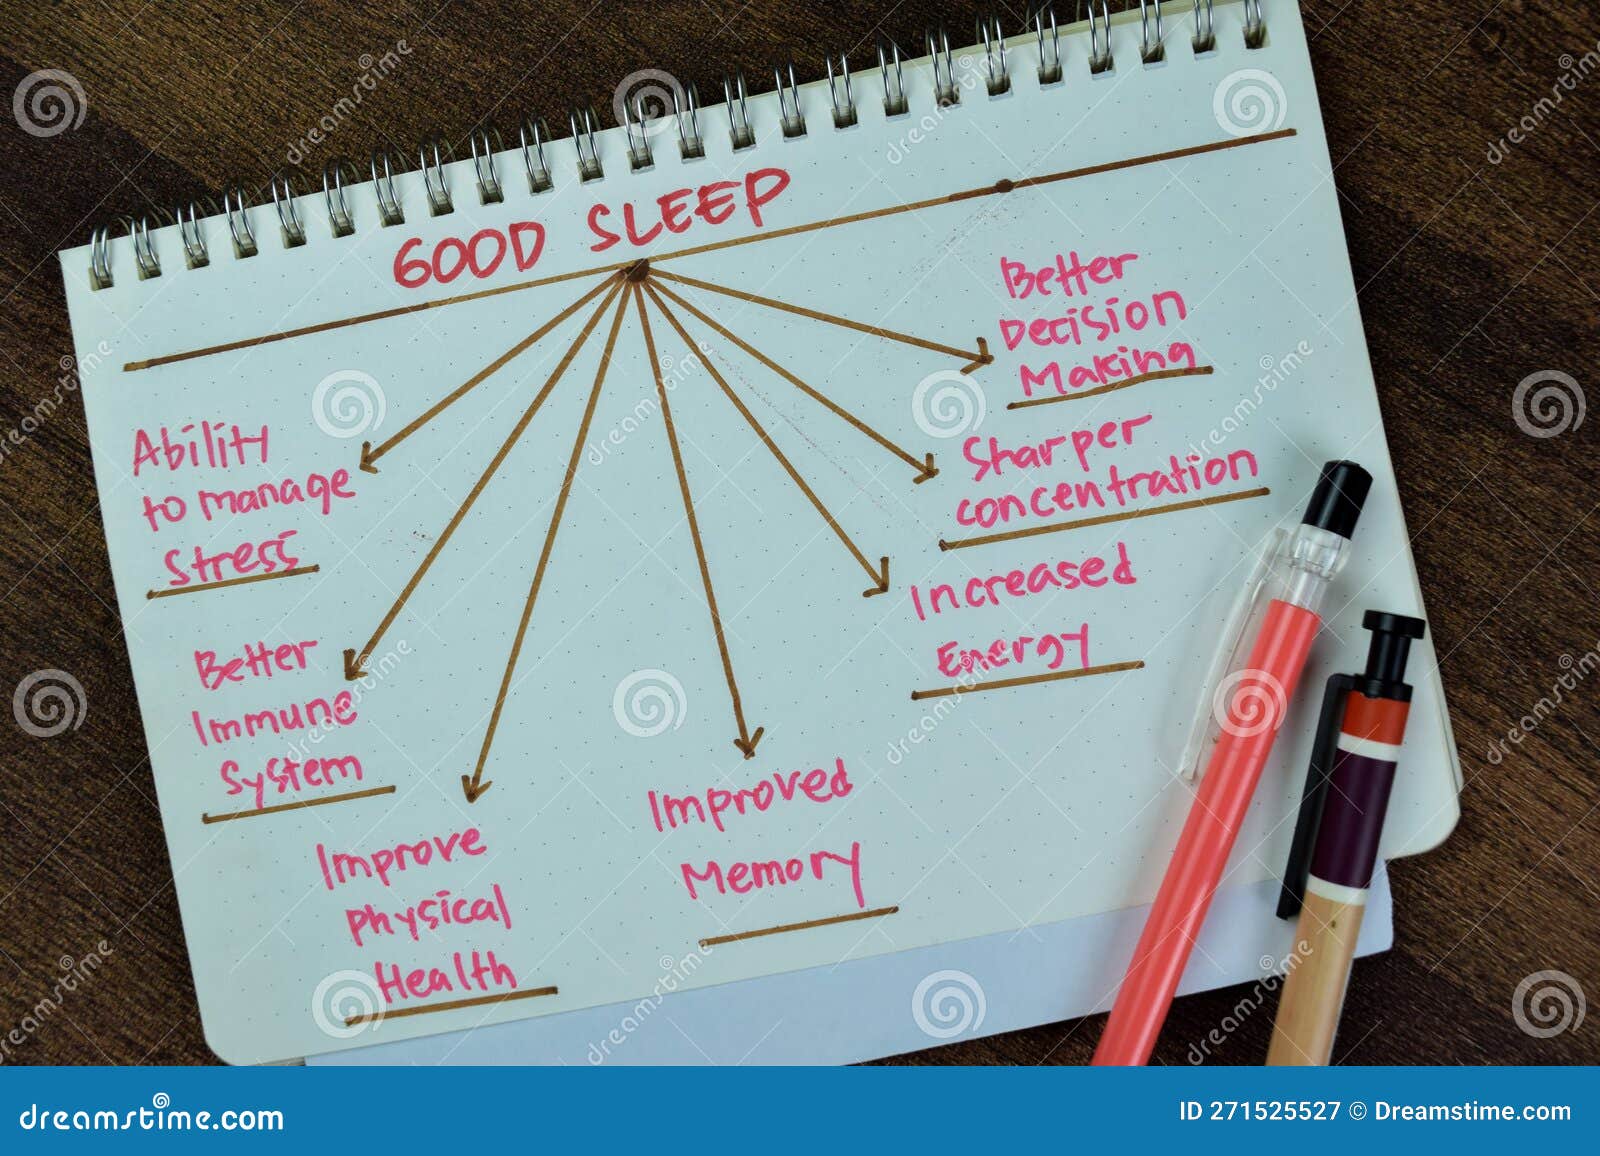 GOOD SLEEP
Ability
to manage
Stress
Better
Immune
System
Improve
Physical
Health
Improved
Memory
Increased
Energy
Sharper
concentration
Better
Decision
Making
dreamstime.com
ID 271525527 © Dreamstime.com